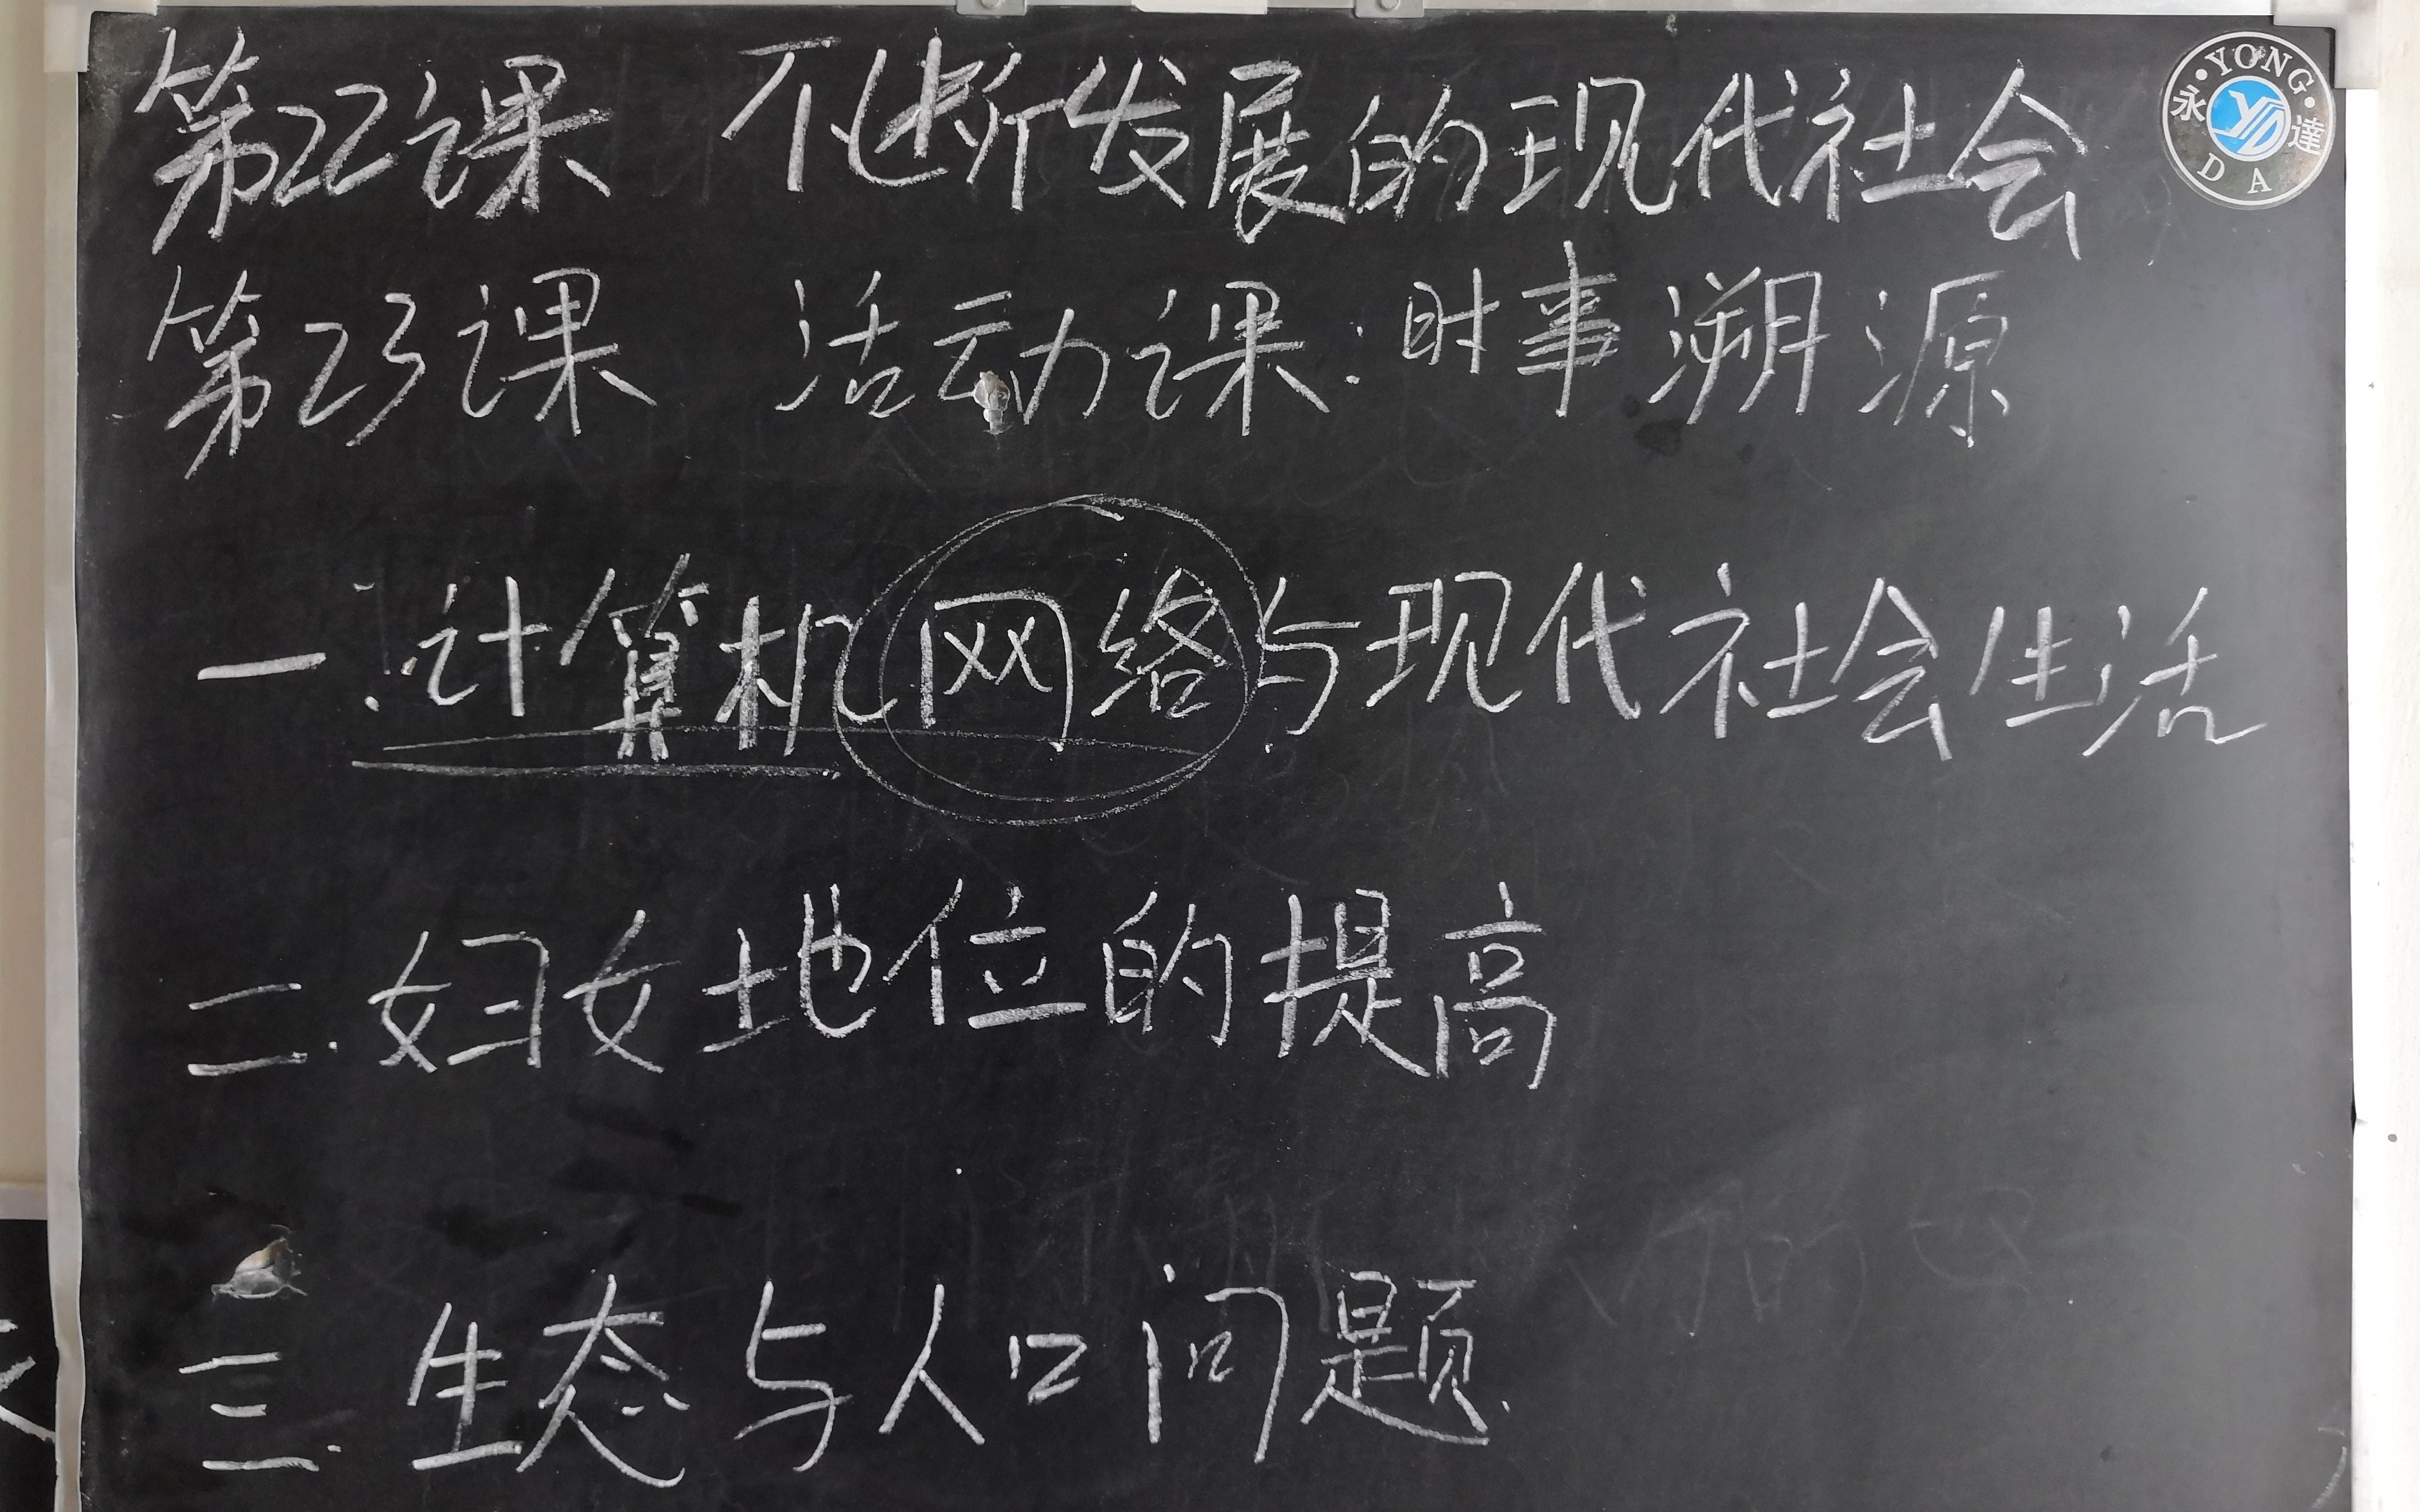 第22课 不断发展的现代社会
第23课 活动课:时事溯源
一.计算机网络与现代社会生活
二.妇女地位的提高
三.生态与人口问题.
·YONG·
永 YD 達
DA